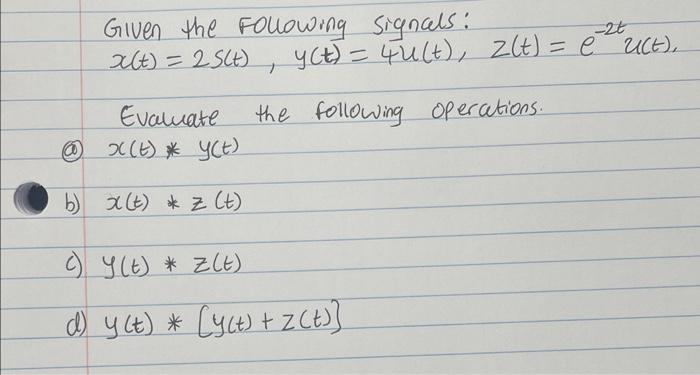 Given the Following signals:
x(t) = 2δ(t) , y(t) = 4u(t), z(t) = e^-2t u(t).
Evaluate the following operations.
ⓐ x(t) * y(t)
b) x(t) * z(t)
c) y(t) * z(t)
d) y(t) * [y(t) + z(t)]